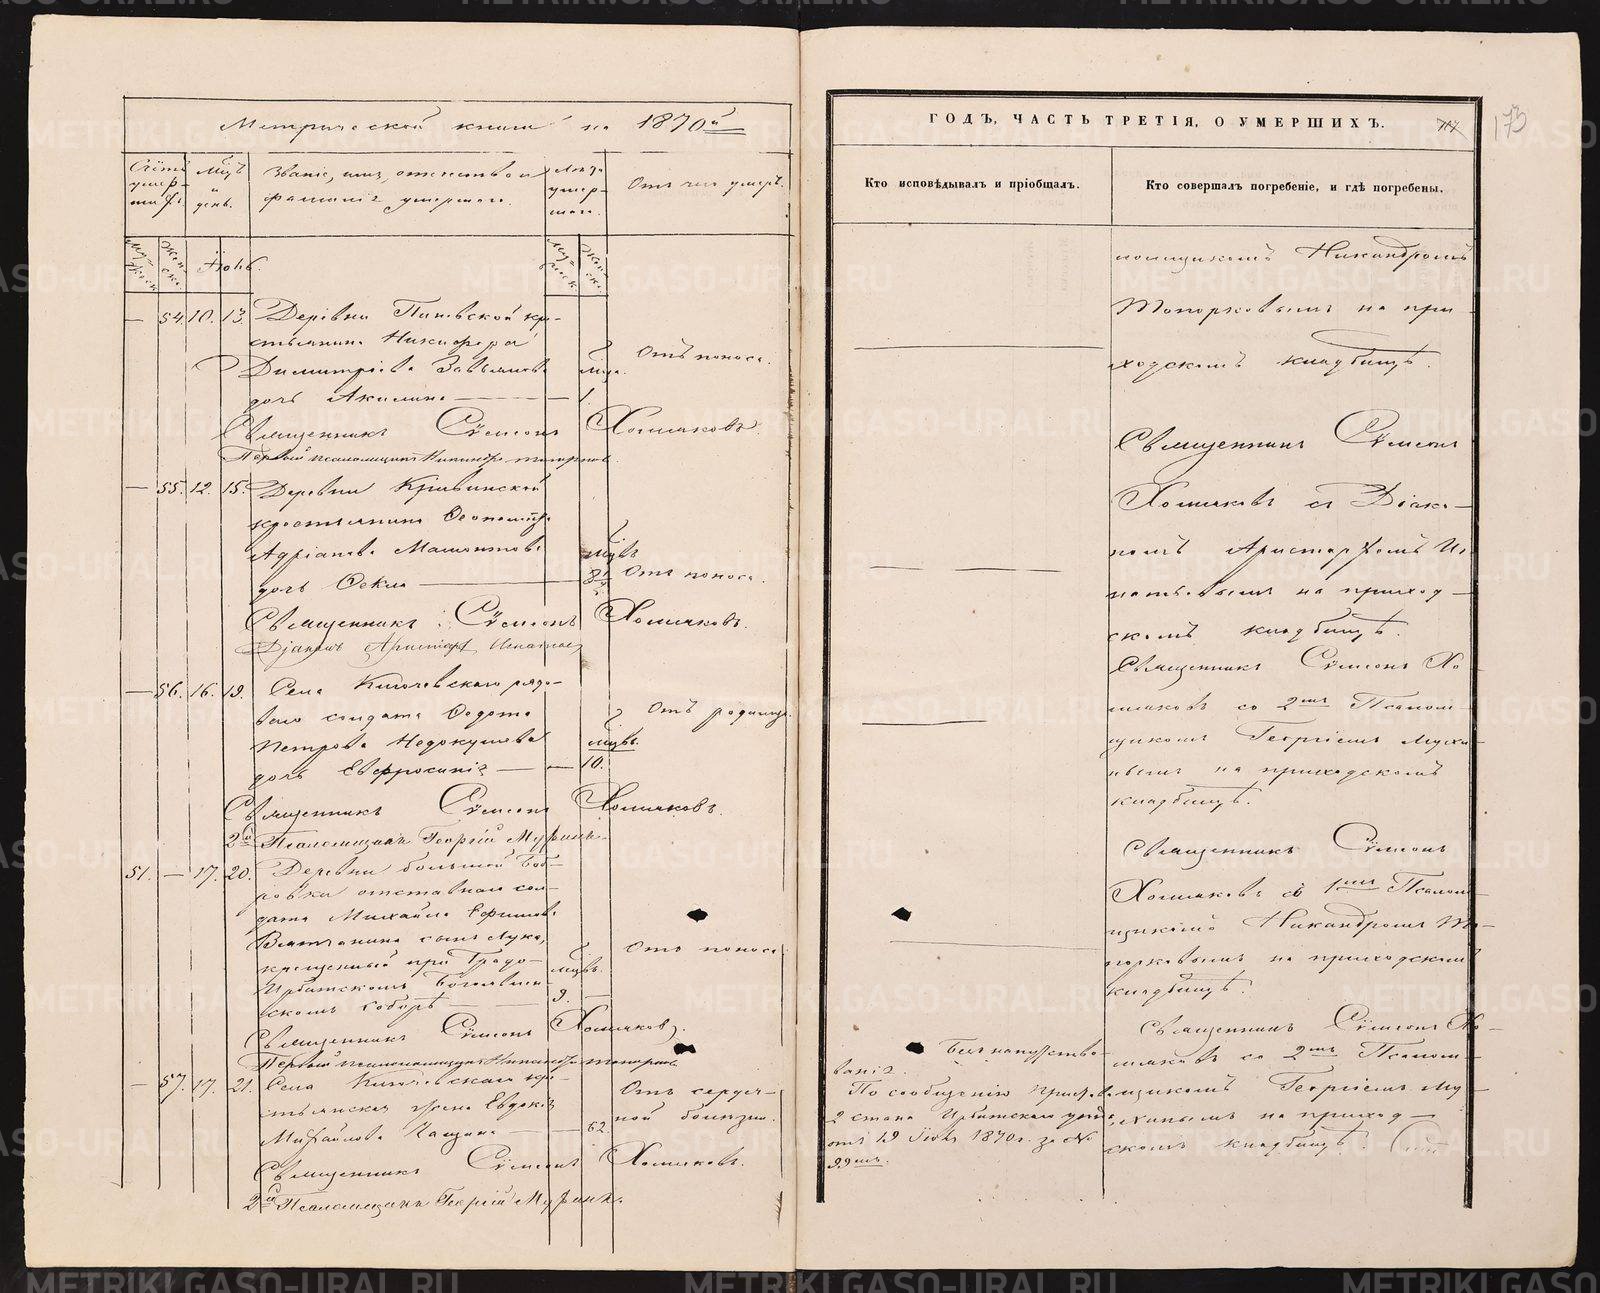 Метрической книги на 1870й
Счётъ умер-шихъ.
Мцъ и день.
Званіе, имя, отчество и фамилія умершаго.
Лѣта умер-шаго.
Отъ чего умеръ.
Муж-еск.
Жен-ска.
Іюнь.
Муж-еск.
Жен-ска.
— 54. 10. 13. Деревни
кре-
стьянина Никифора
Димитріева Завьялова
дочь Акилина — 1.
Отъ поноса.
Священникъ Сѵмеонъ Хомяковъ.
Первый псаломщикъ Никандръ Топорковъ
— 55. 12. 15. Деревни
крестьянина
Адріанова Мамонтова
дочь Ѳекла —
мцвъ
Отъ поноса.
Священникъ Сѵмеонъ Хомяковъ.
Діаконъ Аристархъ Игнатьевъ
— 56. 16. 19. Села Ключевскаго рядо-
ваго солдата Ѳедота
Петрова
дочь Евфросинія —
мцвъ.
10.
Отъ родимца.
Священникъ Сѵмеонъ Хомяковъ.
2й Псаломщикъ Георгій Мухинъ.
51. — 17. 20. Деревни большой Боб-
ровки отставнаго сол-
дата Михаила Ефимова
Вятчанина сынъ Лука,
крещенный при Градо-
Ирбитскомъ Богоявлен-
скомъ соборѣ
мцвъ.
9.
Отъ поноса
Священникъ Сѵмеонъ Хомяковъ.
Первый псаломщикъ Никандръ Топорковъ
— 57. 17. 21. Села Ключевскаго кре-
стьянская жена Евдокія
Михайлова
62.
Отъ сердеч-
ной болѣзни.
Священникъ Сѵмеонъ Хомяковъ.
2й Псаломщикъ Георгій Мухинъ.
ГОДЪ, ЧАСТЬ ТРЕТІЯ, О УМЕРШИХЪ.
173
Кто исповѣдывалъ и пріобщалъ.
Кто совершалъ погребеніе, и гдѣ погребены.
ломщикомъ Никандромъ
Топорковымъ на при-
ходскомъ кладбищѣ.
Священникъ Сѵмеонъ
Хомяковъ съ Діако-
номъ Аристархомъ Иг-
натьевымъ на приход-
скомъ кладбищѣ.
Священникъ Сѵмеонъ Хо-
мяковъ со 2мъ Псалом-
щикомъ Георгіемъ Мухи-
нымъ на приходскомъ
кладбищѣ.
Священникъ Сѵмеонъ
Хомяковъ съ 1мъ Псалом-
щикомъ Никандромъ То-
порковымъ на приходскомъ
кладбищѣ.
Безъ напутство-
ванія.
По сообщенію Пристава
2 стана Ирбитскаго уѣзда
отъ 19 Іюня 1870 г. за №
99мъ.
Священникъ Сѵмеонъ Хо-
мяковъ со 2мъ Псалом-
щикомъ Георгіемъ Му-
хинымъ на приход-
скомъ кладбищѣ.